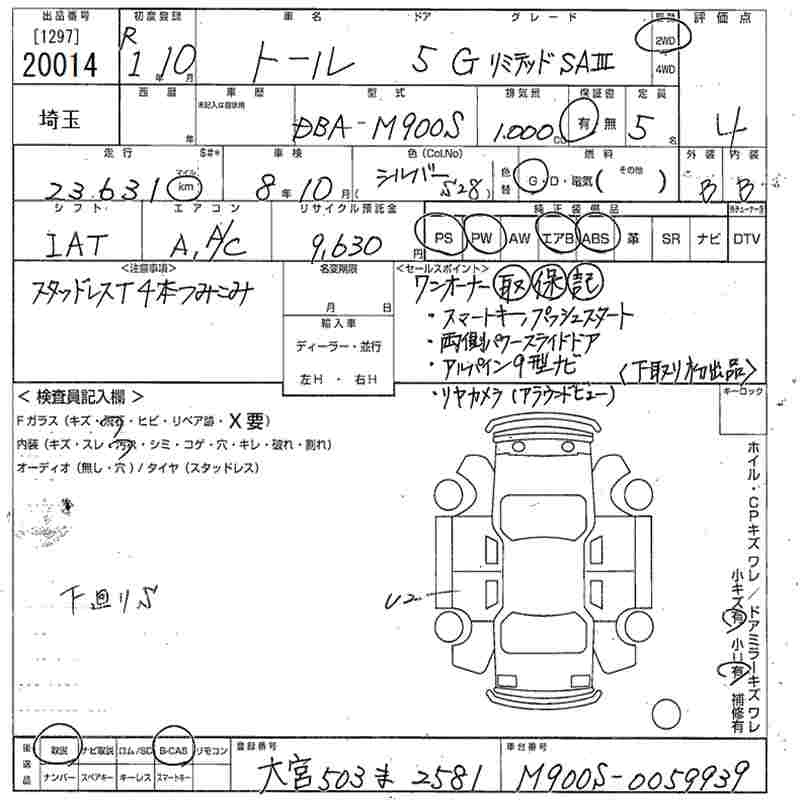 出品番号 初度登録 車名 ドア グレード 駆動 評価点
[1297] 20014 R 1年 10月 トール 5 G リミテッド SAIII 2WD 4WD 4
埼玉
西暦 年 車歴 未記入は自家用 型式 DBA-M900S 排気量 1.000 CC 保証書 有 無 定員 5名
走行 23.631 マイル km 車検 8年 10月 色(Col.No) シルバー S28 色替 燃料 G・D・電気( その他 ) 外装 B 内装 B
シフト IAT エアコン A,A/C リサイクル預託金 9,630 円 純正装備品 PS PW AW エアB ABS 革 SR ナビ DTV
<注意事項> 名変期限 <セールスポイント>
スタッドレスT 4本つみこみ 月 日 ワンオーナー 取 保 記
輸入車 ・スマートキー/プッシュスタート
ディーラー・並行 ・両側パワースライドドア
左H・右H ・アルパイン9型ナビ (下取り初出品)
・リヤカメラ(アラウンドビュー)
キーロック
<検査員記入欄>
Fガラス(キズ・飛石・ヒビ・リペア跡・X要)
内装(キズ・スレ・汚れ・シミ・コゲ・穴・キレ・破れ・割れ)
オーディオ(無し・穴)/タイヤ(スタッドレス)
下廻りS
U2
ホイル・CPキズ ワレ/ドアミラーキズ ワレ
小キズ有 小U有 補修有
後送品 取説 ナビ取説 ロム/SD B-CAS リモコン
ナンバー スペアキー キーレス スマートキー
登録番号 大宮 503 ま 2581
車台番号 M900S-0059939